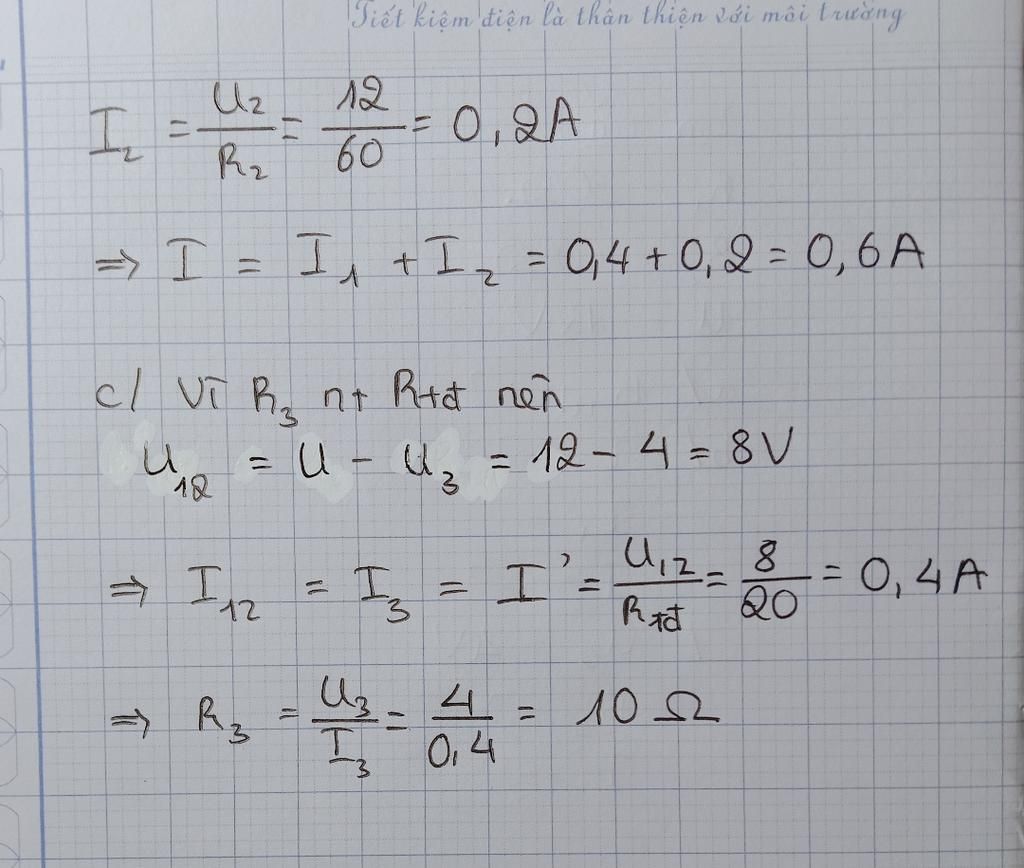 Tiết kiệm điện là thân thiện với môi trường
I₂ = U₂/R₂ = 12/60 = 0,2A
⇒ I = I₁ + I₂ = 0,4 + 0,2 = 0,6A
c/ Vì R₃ nt Rtđ nên
U₁₂ = U - U₃ = 12 - 4 = 8V
⇒ I₁₂ = I₃ = I' = U₁₂/Rtđ = 8/20 = 0,4A
⇒ R₃ = U₃/I₃ = 4/0,4 = 10 Ω